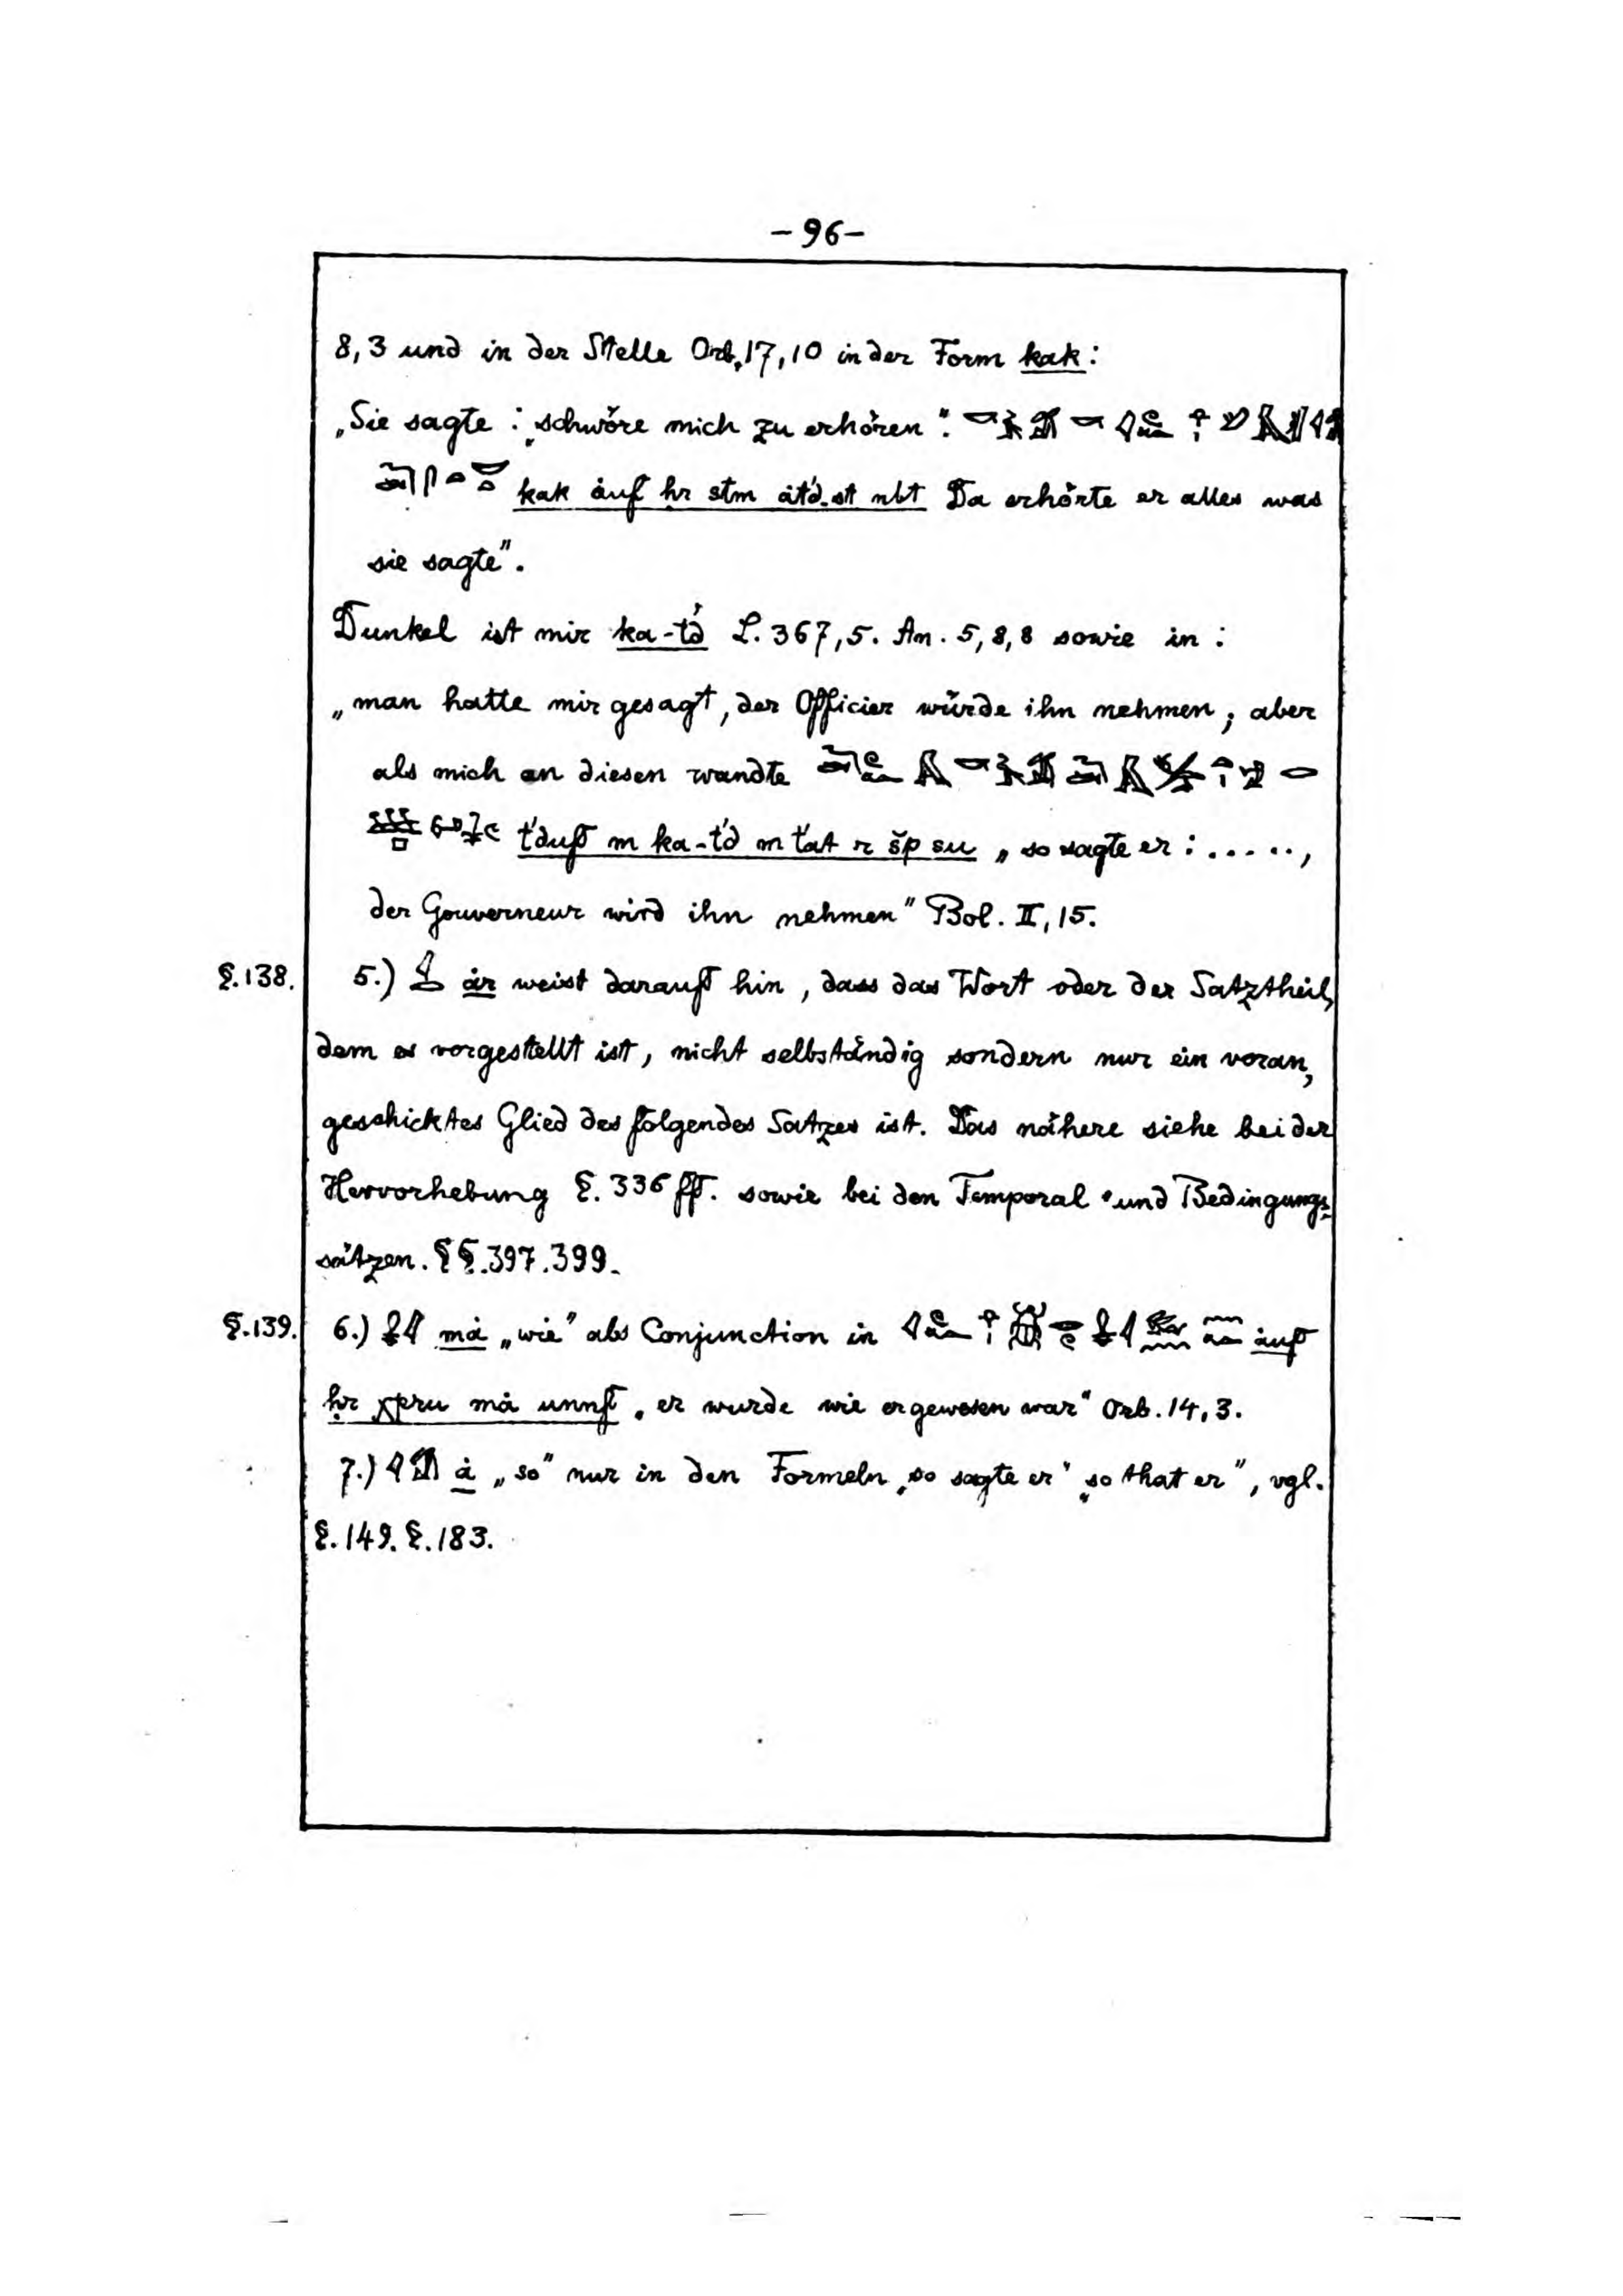 -96-
8,3 und in der Stelle Orb.17,10 in der Form kak:
„Sie sagte: „schwöre mich zu erhören“.
kak ȧuf ḥr stm ȧt́d.st nbt Da erhörte er alles was
sie sagte“.
Dunkel ist mir ka-t́d L. 367,5. An. 5,8,8 sowie in:
„man hatte mir gesagt, der Officier würde ihn nehmen; aber
als mich an diesen wandte
t́duf m ka-t́d m t́at r šp su „so sagte er: .....,
der Gouverneur wird ihn nehmen“ Bol. II,15.
§.138. 5.) ȧr weist darauf hin, dass das Wort oder der Satztheil,
dem es vorgestellt ist, nicht selbständig sondern nur ein voran,
geschicktes Glied des folgendes Satzes ist. Das nähere siehe bei der
Hervorhebung §. 336 ff. sowie bei den Temporal- und Bedingungs-
sätzen. §§.397.399.
§.139. 6.) mȧ „wie“ als Conjunction in ȧuf
ḥr χpru mȧ unnf „er wurde wie er gewesen war“ Orb. 14,3.
7.) ȧ „so“ nur in den Formeln „so sagte er“ „so that er“, vgl.
§.149. §.183.